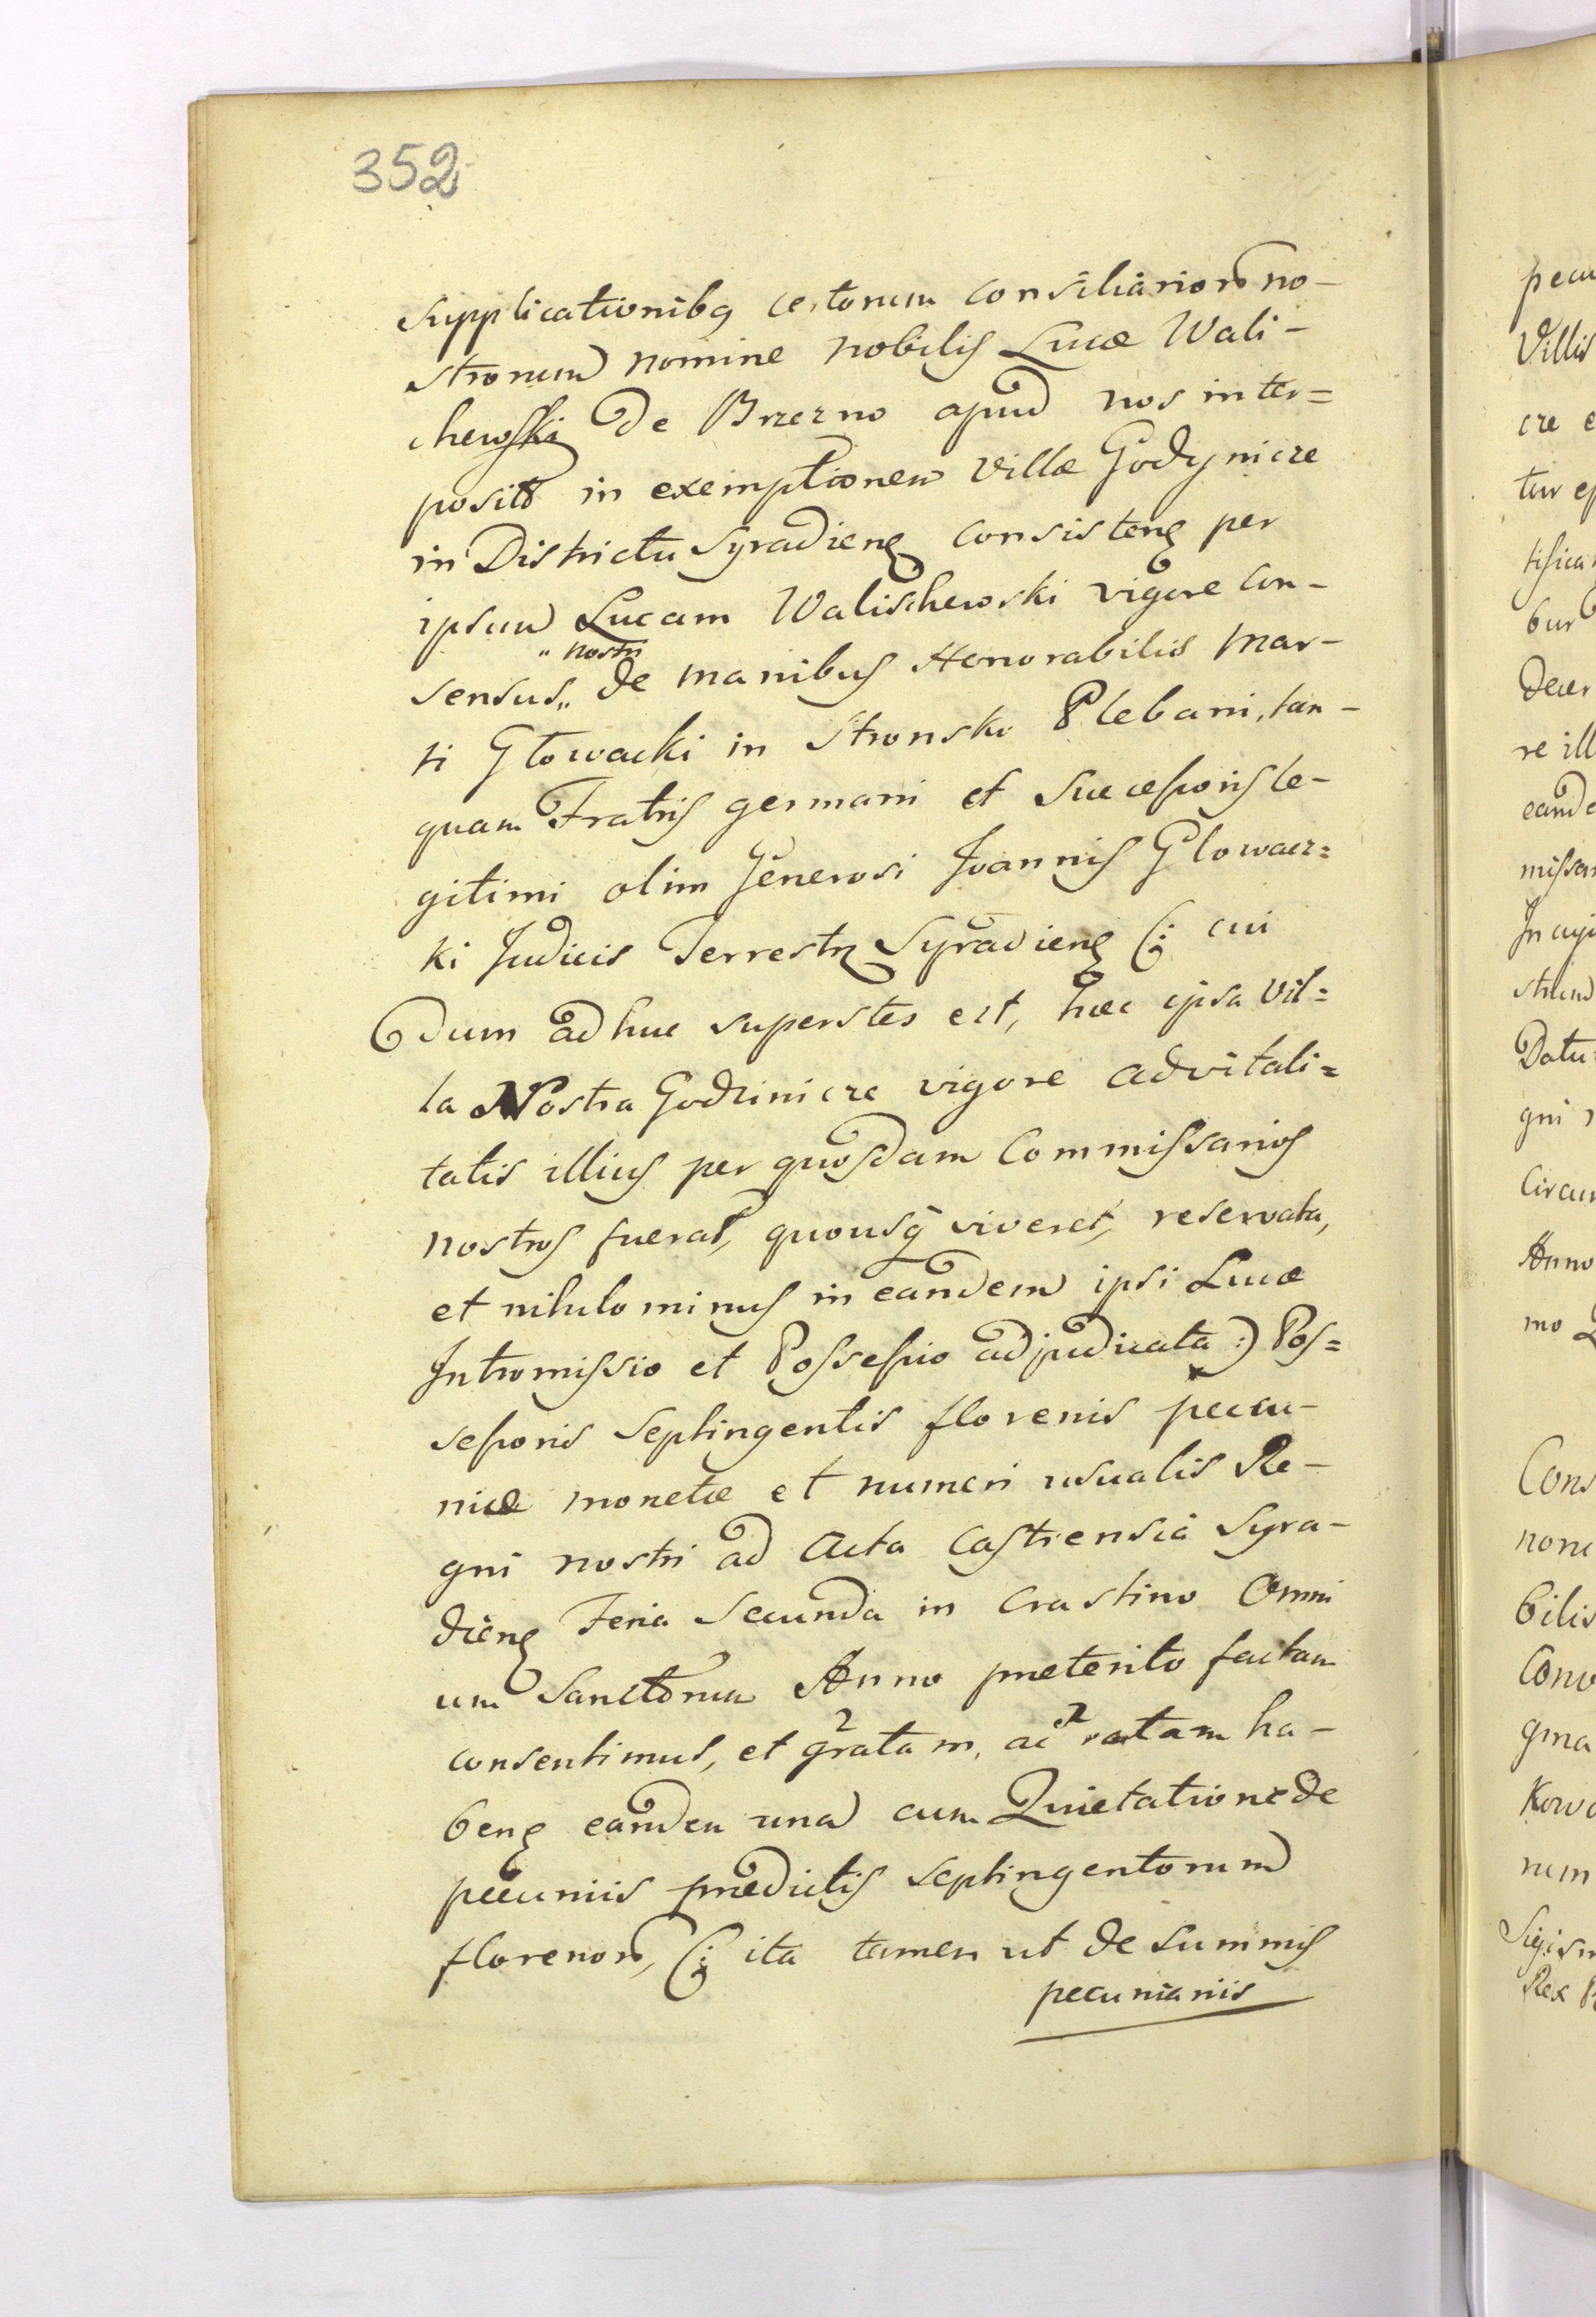 352
supplicationibq certorum consiliarior no-
strorum nomine nobilis Lucæ Wali-
chewski de Brzezno apud nos inter=
posit in exemptionem villæ Godynicze
in Districtu Syradien consisten per
ipsum Lucam Walischewski vigore con-
sensus „ nostri „ de manibus Honorabilis Mar-
ti Głowacki in Stronsko Plebani, tan-
quam Fratris germani et Successoris le-
gitimi olim Generosi Joannis Glowacz=
ki Judicis Terrestr Syradien (: cui
dum adhuc superstes est, hæc ipsa vil=
la Nostra Godzinicze vigore advitali=
tatis illius per quosdam Commissarios
nostros fuerat, quousq viveret, reservata,
et nihilominus in eandem ipsi Lucæ
Intromissio et Possessio adjudicata :) Pos=
sessoris septingentis florenis pecu-
niæ monetæ et numeri usualis Re-
gni nostri ad Acta Castrensia Syra-
dien Feria Secunda in Crastino Omni
um Sanctorum Anno præterito factam
consentimus, et gratam, ac ratam ha-
ben eandem una cum Quietatione de
pecuniis prædictis septingentorum
florenor, (: ita tamen ut de summis
pecuniariis
pecu
Villis
cze e
tur
tifica
bur
Decer
re ill
eande
missar
In cuju
strum
Datu
gni
Circum
Anno
mo
Cons
none
bilis
Conv
gma
Kowa
num
Sigism
Rex P